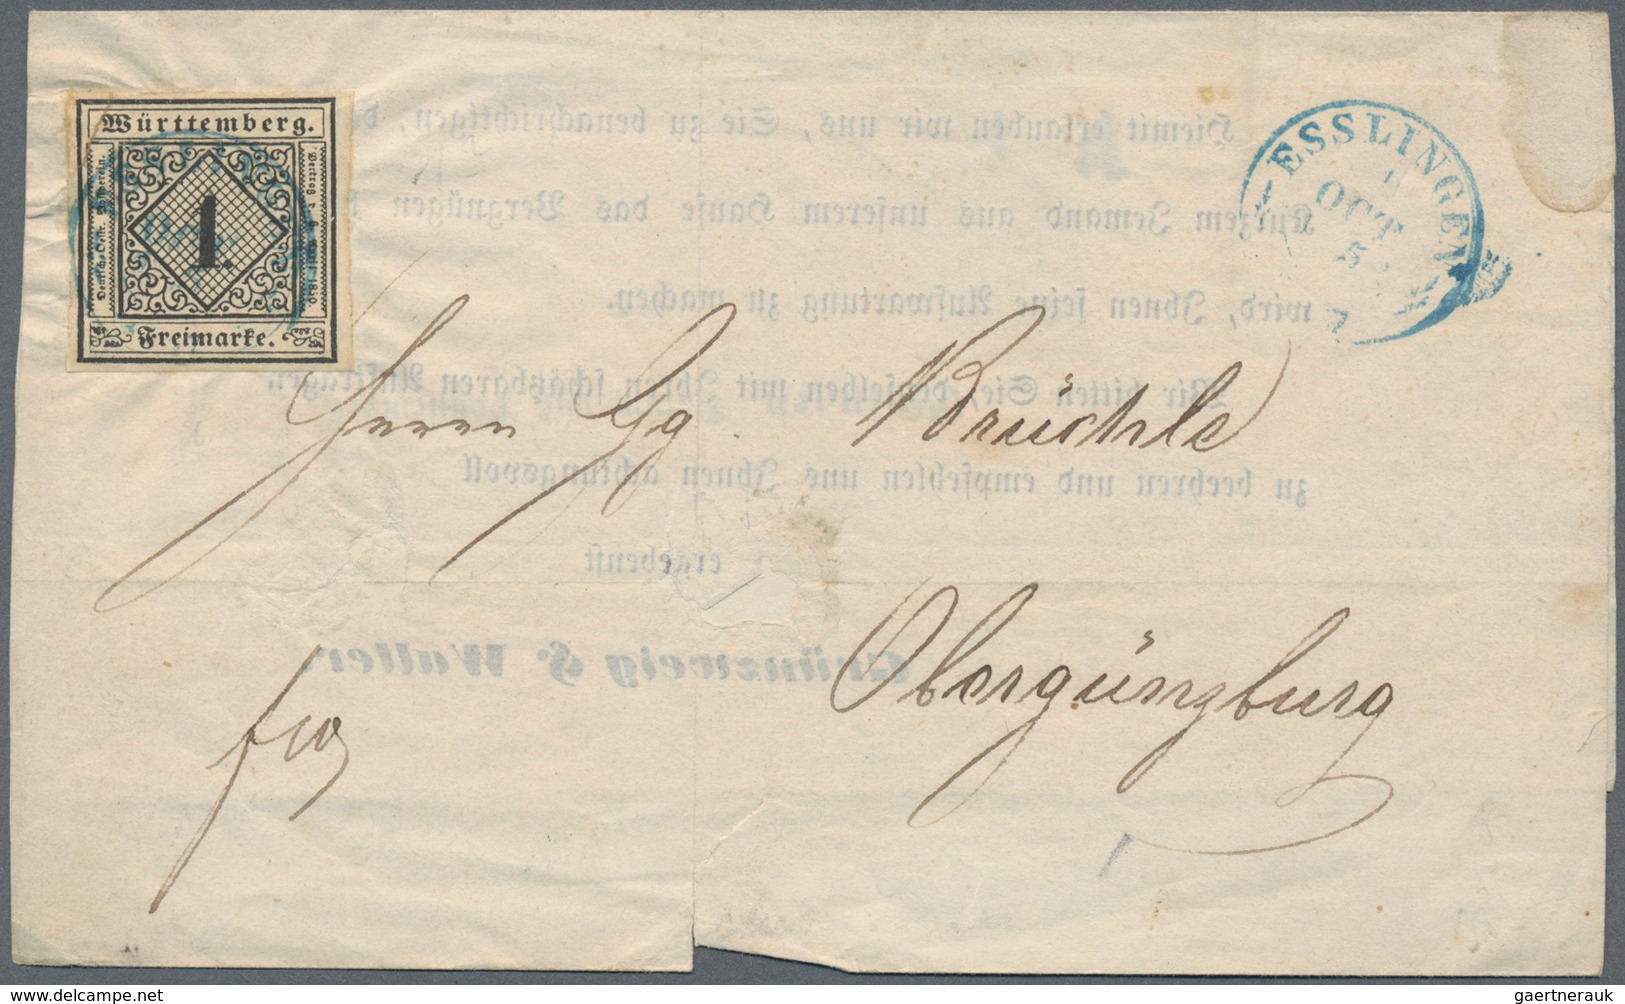 Württemberg.
1.
Freimarke.
ESSLINGEN
1
OCT
Hiemit erlauben wir uns, Sie zu benachrichtigen,
Kurzem Jemand aus unserem Hause das Vergnügen
wird, Ihnen seine Aufwartung zu machen.
Wir bitten Sie, denselben mit Ihren schätzbaren Aufträgen
zu beehren und empfehlen uns Ihnen achtungsvoll
ergebenst
Grünzweig & Walter
Herrn Gg. Brüchle
Obergünzburg
frco
gaertnerauk